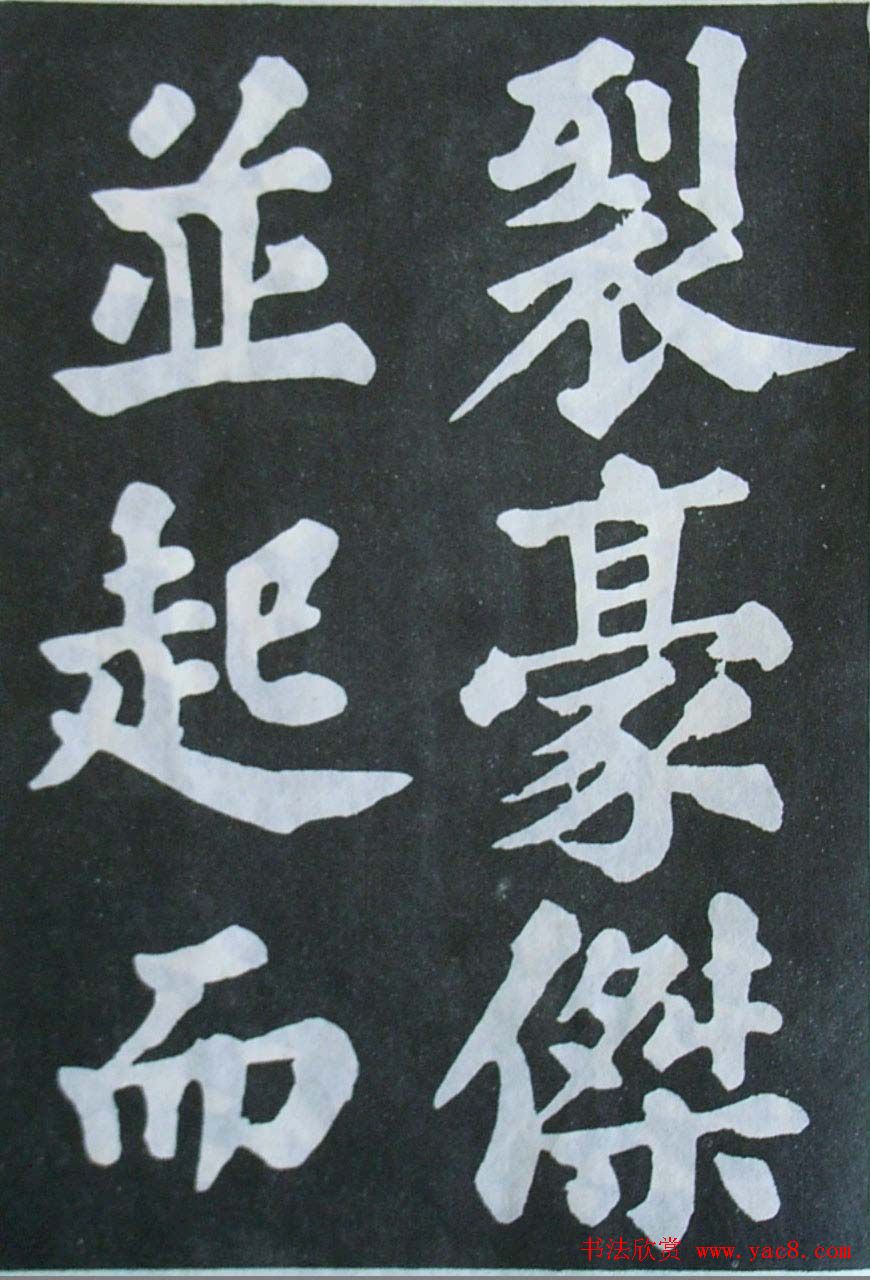 裂豪傑
並起而
书法欣赏 www.yac8.com